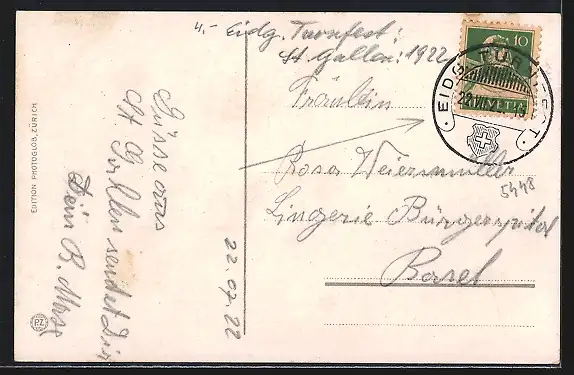 4.- Eidg. Turnfest:
St Gallen: 1922
10
HELVETIA
EIDG. TURNFEST
Fräulein
Rosa Weiersmüller
5448
Lingerie Bürgerspital
Basel
Grüsse aus
St Gallen sendet Dir
Dein B.
22.07.22
EDITION PHOTOGLOB, ZÜRICH
PZ